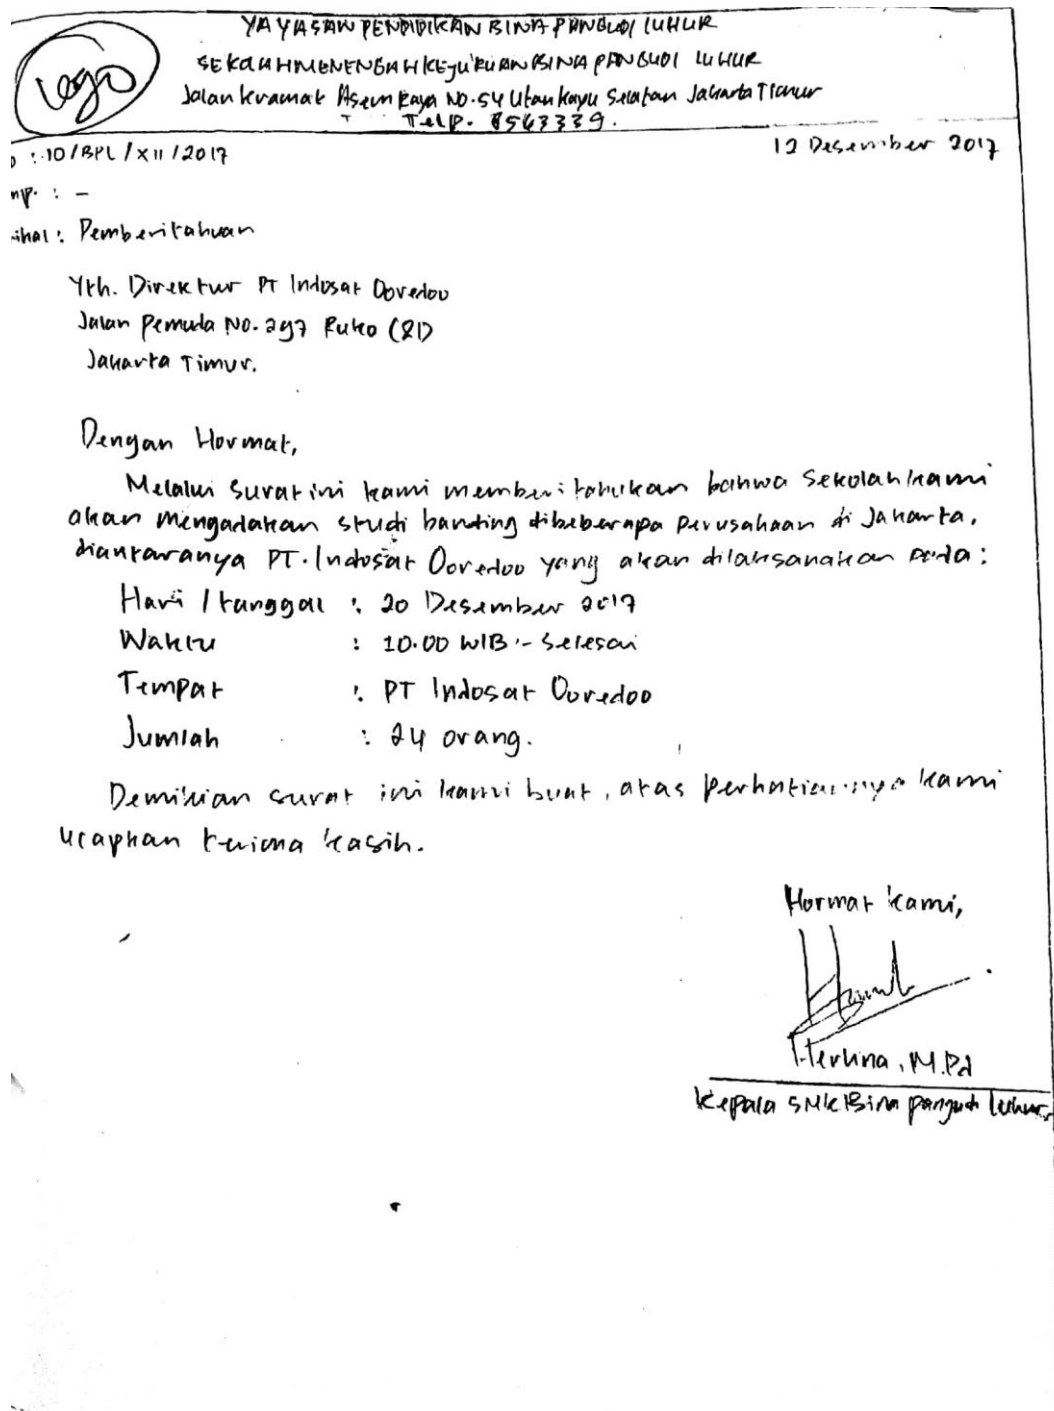 YAYASAN PENDIDIKAN BINA PANGUDI LUHUR
Logo
SEKOLAH MENENGAH KEJURUAN BINA PANGUDI LUHUR
Jalan Kramat Asem Raya NO.54 Utan Kayu Selatan Jakarta Timur
Telp. 8563339.
: 10/BPL/XII/2017
12 Desember 2017
mp. : -
ihal : Pemberitahuan
Yth. Direktur PT Indosat Ooredoo
Jalan Pemuda No. 297 Ruko
Jakarta Timur.
Dengan Hormat,
Melalui surat ini kami memberitahukan bahwa sekolah kami
akan mengadakan studi banding dibeberapa perusahaan di Jakarta,
diantaranya PT. Indosat Ooredoo yang akan dilaksanakan pada :
Hari / tanggal : 20 Desember 2017
Waktu : 10.00 WIB - Selesai
Tempat : PT Indosat Ooredoo
Jumlah : 24 orang.
Demikian surat ini kami buat, atas perhatiannya kami
ucapkan terima kasih.
Hormat kami,
Herlina, M.Pd
Kepala SMK Bina pangudi luhur